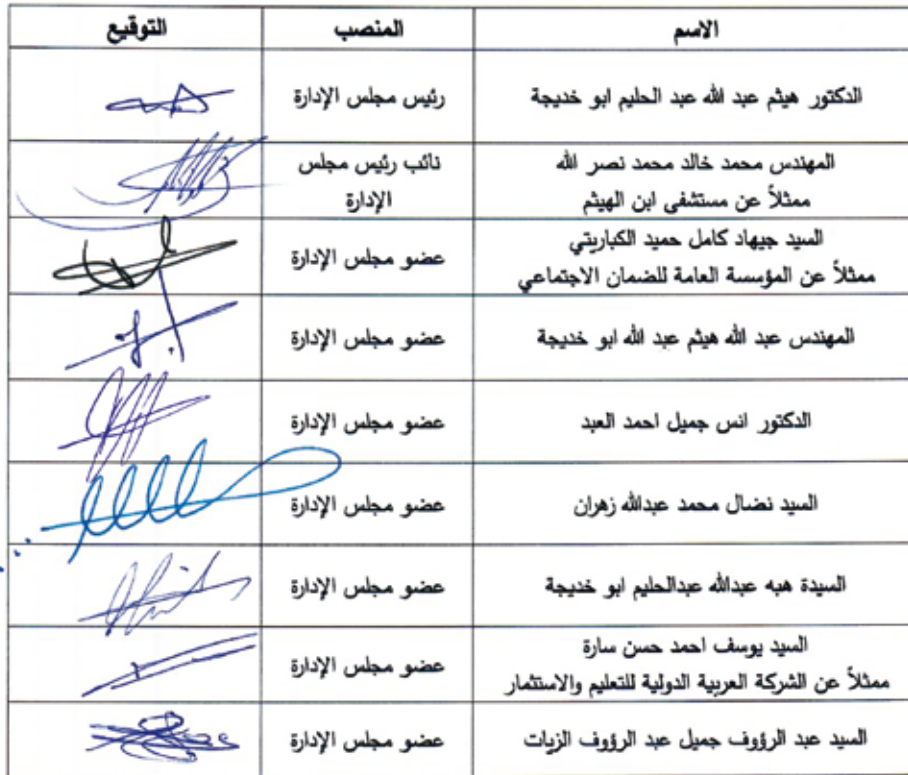 الاسم المنصب التوقيع
الدكتور هيثم عبد الله عبد الحليم ابو خديجة رئيس مجلس الإدارة
المهندس محمد خالد محمد نصر الله نائب رئيس مجلس
ممثلاً عن مستشفى ابن الهيثم الإدارة
السيد جيهاد كامل حميد الكباريتي
ممثلاً عن المؤسسة العامة للضمان الاجتماعي عضو مجلس الإدارة
المهندس عبد الله هيثم عبد الله ابو خديجة عضو مجلس الإدارة
الدكتور انس جميل احمد العبد عضو مجلس الإدارة
السيد نضال محمد عبدالله زهران عضو مجلس الإدارة
السيدة هبه عبدالله عبدالحليم ابو خديجة عضو مجلس الإدارة
السيد يوسف احمد حسن سارة
ممثلاً عن الشركة العربية الدولية للتعليم والاستثمار عضو مجلس الإدارة
السيد عبد الرؤوف جميل عبد الرؤوف الزيات عضو مجلس الإدارة